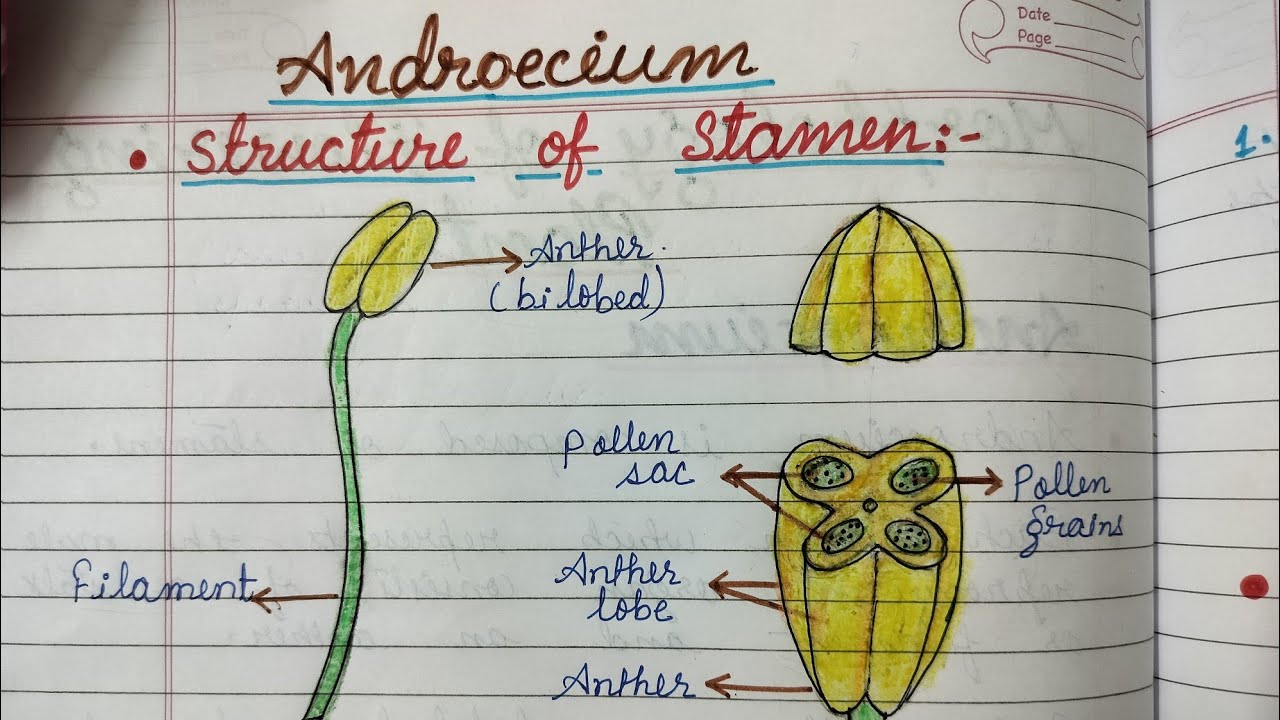 Date
Page
Androecium
• Structure of Stamen:-
1.
Anther.
(bilobed)
Pollen
sac
Pollen
grains
Filament
Anther
lobe
Anther